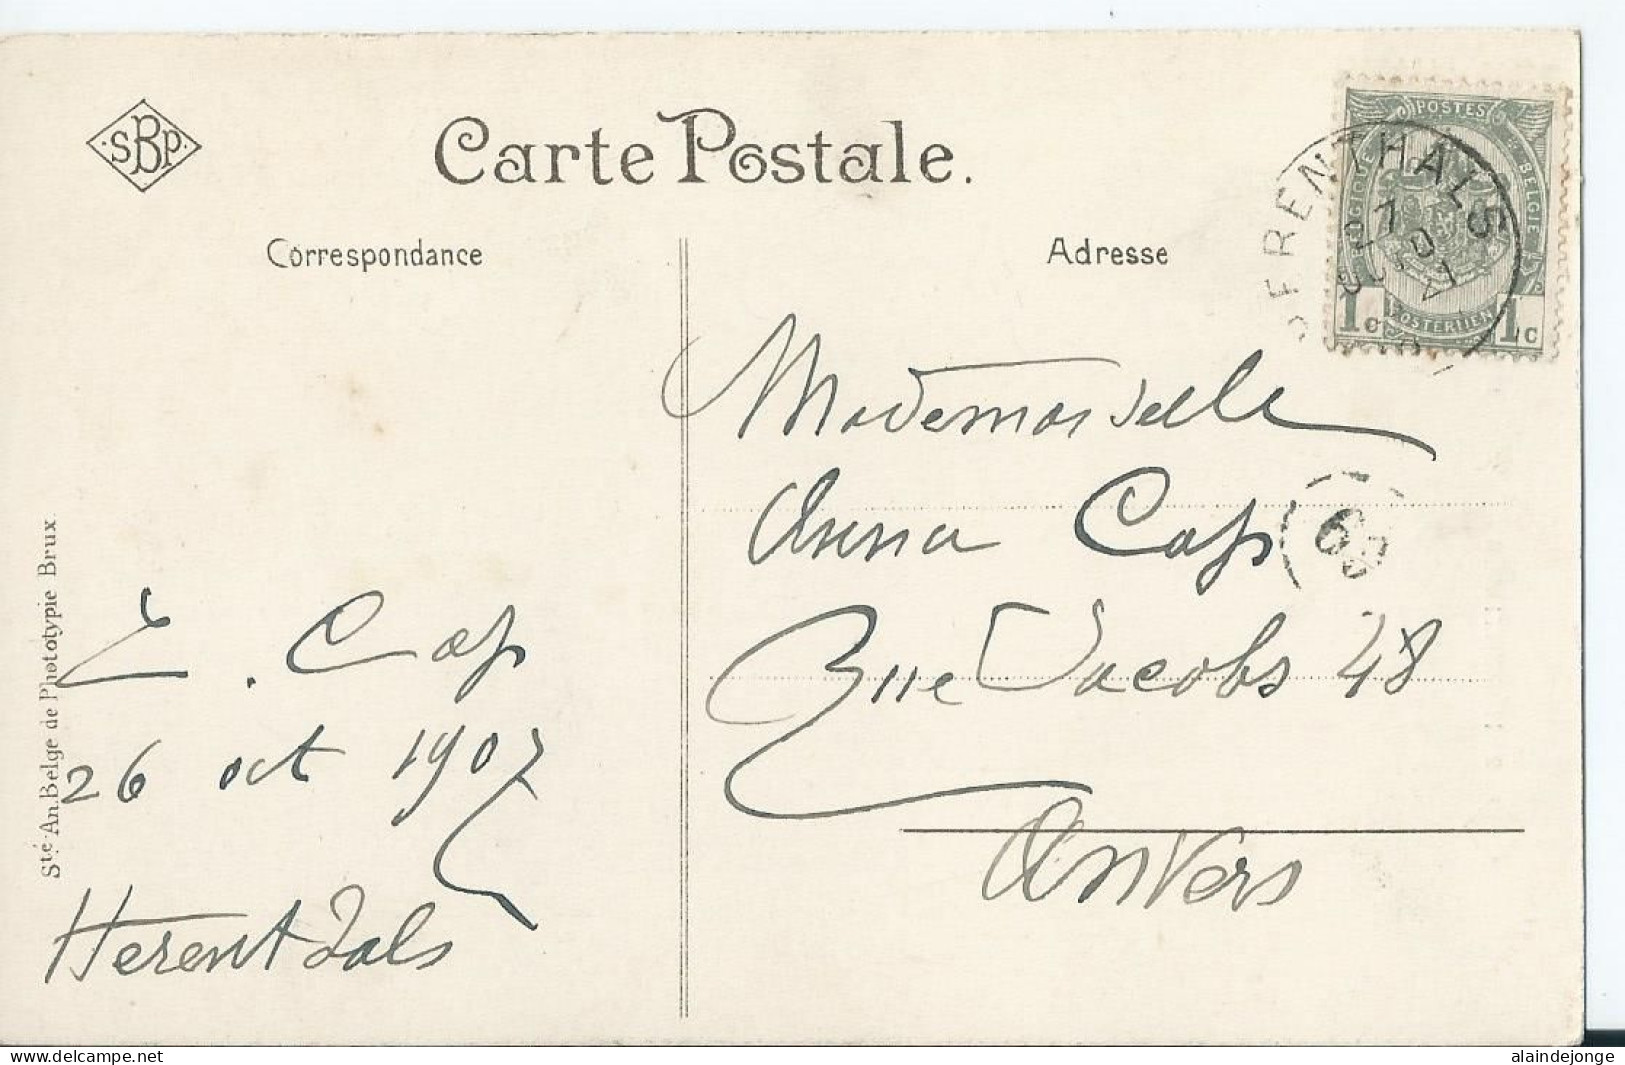 SBP
Carte Postale.
Correspondance
Adresse
POSTES
BELGIQUE
BELGIE
POSTERIJEN
1c 1c
HERENTHALS
Mademoiselle
Anna Cap
Rue Jacobs 48
Anvers
E. Cap
26 oct 1907
Herenthals
Sté. An. Belge de Phototypie Brux
www.delcampe.net
alaindejonge